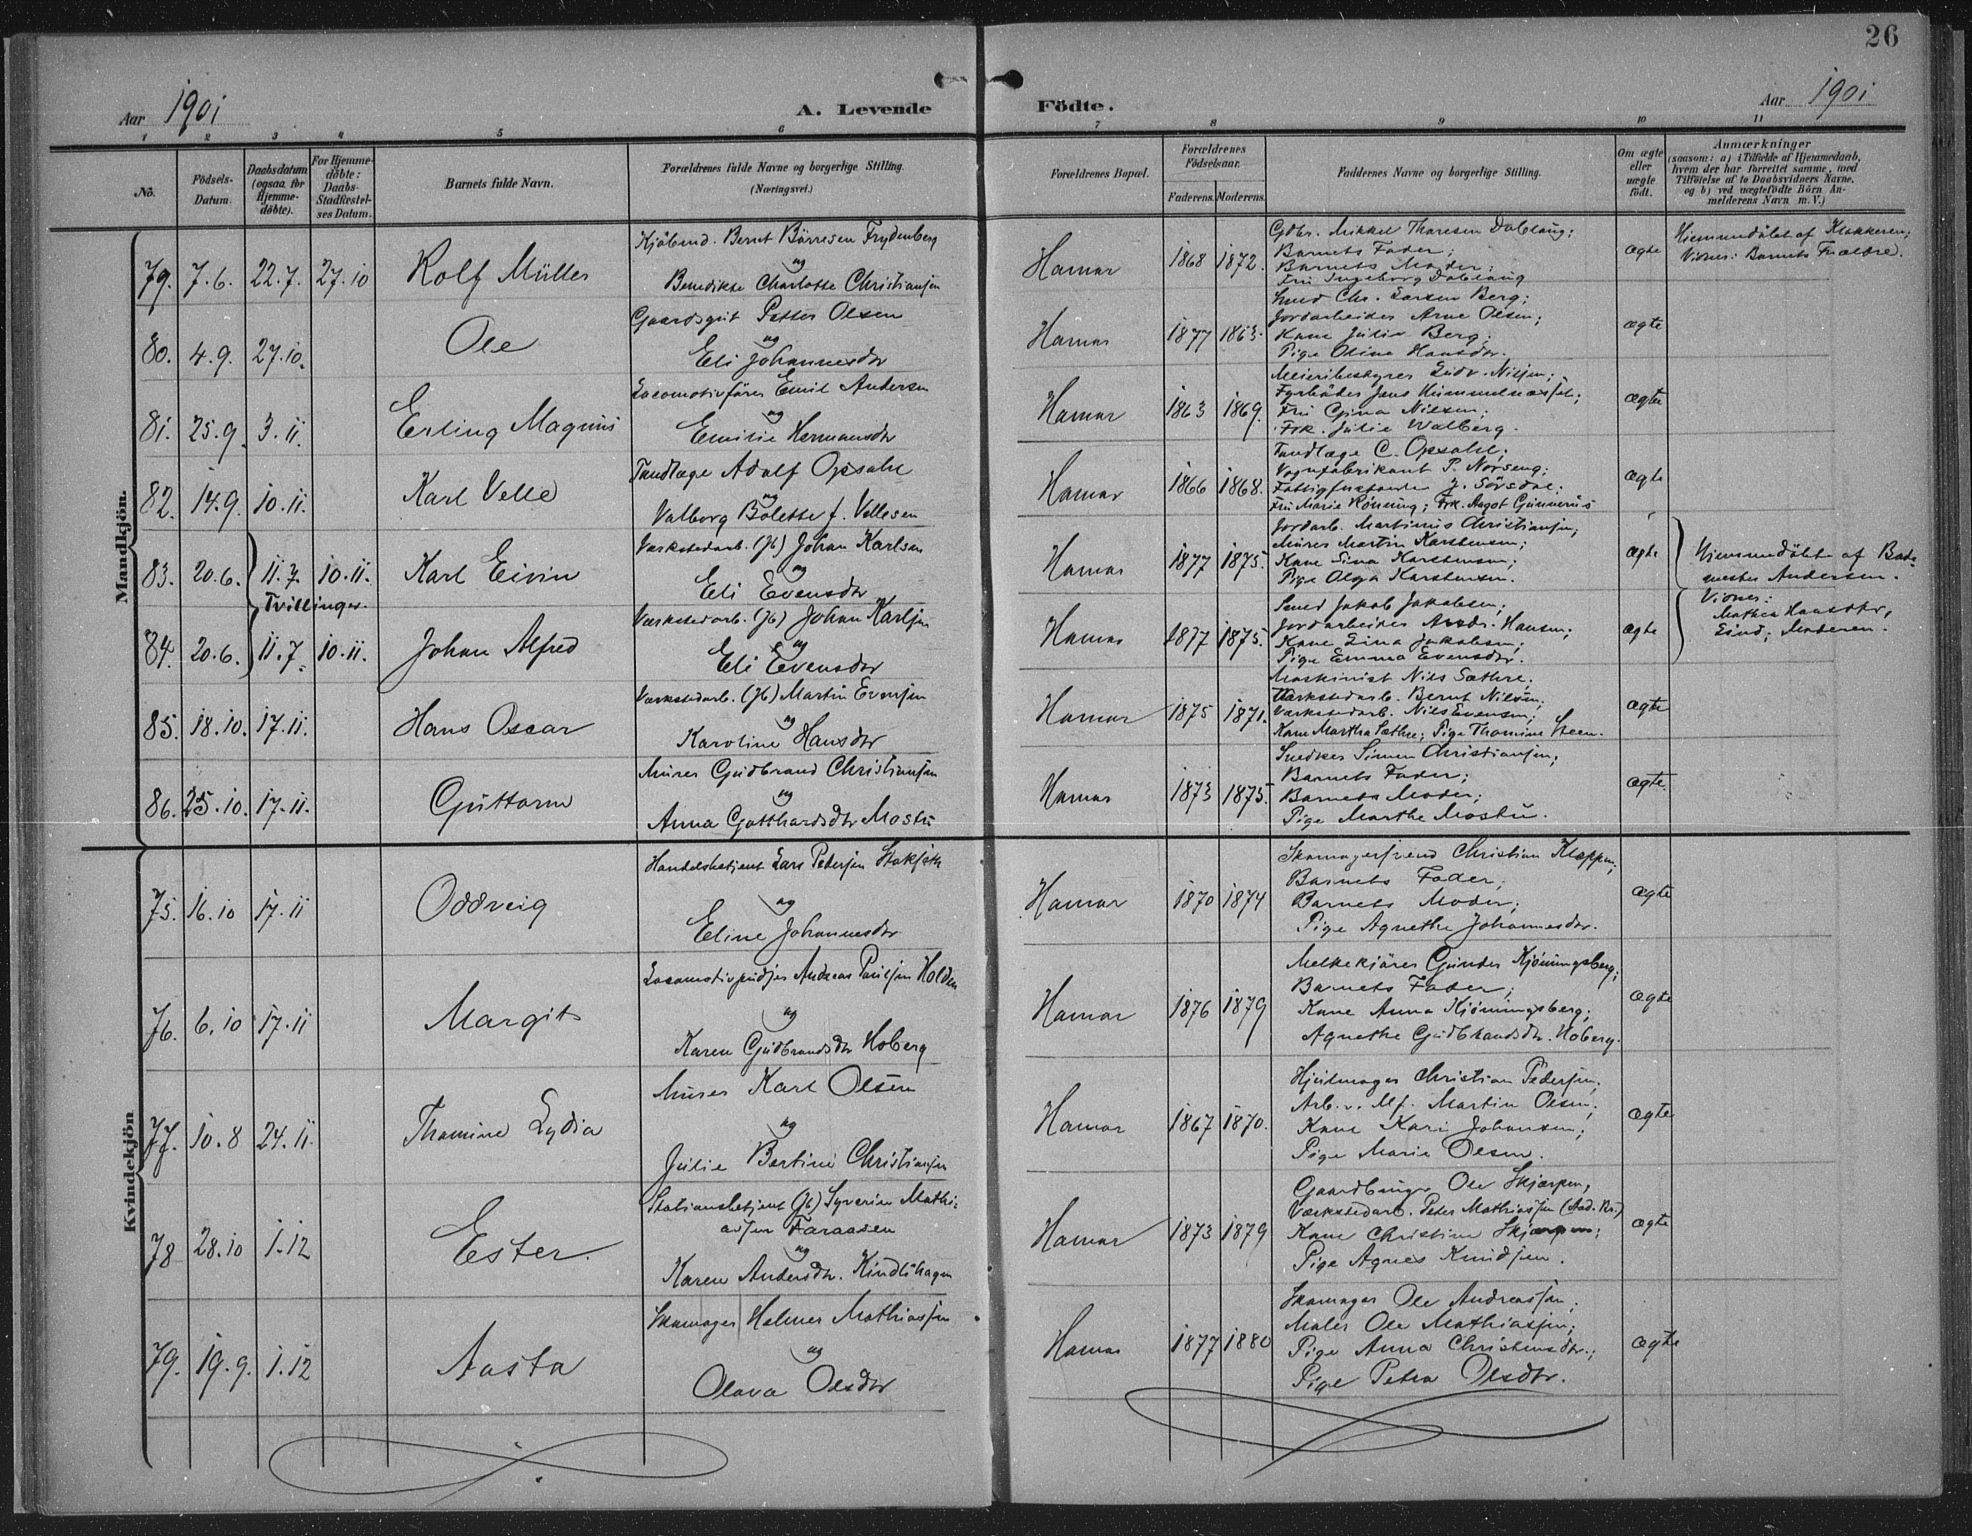 26
Aar 1901 A. Levende Födte. Aar 1901
1 2 3 4 5 6 7 8 9 10 11
No.
Födsels-Datum.
Daabsdatum (ogsaa for Hjemme-döbte).
For Hjemme-döbte: Daabs-Stadfæstel-ses Datum.
Barnets fulde Navn.
Forældrenes fulde Navne og borgerlige Stilling.
(Næringsvei.)
Forældrenes Bopæl.
Forældrenes Födselsaar.
Faderens. Moderens.
Faddernes Navne og borgerlige Stilling.
Om ægte eller uægte født.
Anmærkninger
(saasom: a) i Tilfælde af Hjemmedaab,
hvem der har forrettet samme, med
Tilföielse af to Daabsvidners Navne,
og b) ved uægtefödte Börn An-
melderens Navn m. V.)
Mandkjön.
79. 7.6. 22.7. 27.10 Rolf Müller
Kjöbmd. Bernt Börresen Frydenberg
og
Benedikte Charlotte Christiansen
Hamar 1868 1872.
Gdbr. Mikkel Thoresen Dobloug;
Barnets Fader;
Barnets Moder;
Fru Ingeborg Dobloug
ægte
Hjemmedöbt af Klokkeren;
Vidner: Barnets Forældre.
80. 4.9. 27.10. Ole
Gaardsgut Petter Olsen
og
Eli Johannesdtr
Hamar 1877 1863.
Smed Chr. Larsen Berg;
Jordarbeider Arne Olsen;
Kone Julie Berg;
Pige Oline Hansdtr.
ægte
81. 25.9. 3.11. Erling Magnus
Locomotivförer Emil Andersen
og
Emilie Hermansdtr
Hamar 1863 1869.
Meieribestyrer Ludv. Nilsen;
Fyrböder Jens Hummelnæsset;
Fru Gina Nilsen;
Frk. Julie Walberg.
ægte
82. 14.9. 10.11. Karl Velle
Tandlæge Adolf Opsahl
og
Valborg Bolette f. Vellesen
Hamar 1866 1868.
Tandlæge C. Opsahl;
Vognfabrikant P. Norseng;
J. Sörsdal;
Fru Marie Rönning; Frk. Aagot Gunnerus
ægte
83. 20.6. 11.7. 10.11. Karl Eivin
Tvillinger.
Værkstedarb. (Jb) Johan Karlsen
og
Eli Evensdtr
Hamar 1877 1875.
Jordarb. Martinus Christiansen;
Murer Martin Karstensen;
Kone Lina Karstensen;
Pige Olga Karstensen.
ægte
Hjemmedöbt af Bad-
mester Andersen.
Vidner:
Mathea Hansdtr,
Moderen.
84. 20.6. 11.7. 10.11. Johan Alfred
Værkstedarb. (Jb) Johan Karlsen
og
Eli Evensdtr
Hamar 1877 1875.
Smed Jakob Jakobsen;
Jordarbeider Andr. Hansen;
Kone Lina Jakobsen;
Pige Emma Evensdtr.
ægte
85. 18.10. 17.11. Hans Oscar
Værkstedarb. (Jb) Martin Evensen
og
Karoline Hansdtr
Hamar 1875 1871.
Maskinist Nils Sæthre.
Værkstedarb. Bernt Nilsen;
Værkstedarb. Nils Evensen;
Kone Martha Sæthre; Pige Thomine Steen.
ægte
86. 25.10. 17.11. Guttorm
Murer Gudbrand Christiansen
og
Anna Gotthardsdtr Mostu
Hamar 1873 1875.
Snedker Simen Christiansen;
Barnets Fader;
Barnets Moder;
Pige Marthe Mostu.
ægte
Kvindekjön
75. 16.10 17.11 Oddveig
Handelsbetjent Lars Pedersen
og
Eline Johannesdtr
Hamar 1870 1874
Skomagersvend Christian Kleppen;
Barnets Fader;
Barnets Moder;
Pige Agnethe Johannesdtr.
ægte
76. 6.10 17.11 Margit
Locomotivpudser Andreas Paulsen Holden
og
Karen Gudbrandsdtr Hoberg
Hamar 1876 1879
Melkekjörer Gunder Kjönningsberg;
Barnets Fader;
Kone Anna Kjönningsberg;
Agnethe Gudbrandsdtr. Hoberg.
ægte
77. 10.8 24.11. Thomine Lydia
Murer Karl Olsen
og
Julie Bertine Christiansen
Hamar 1867 1870.
Hjulmager Christian Pedersen;
Arb. v. Mf. Martin Olsen;
Kone Kari Johansen;
Pige Marie Olsen.
ægte
78 28.10 1.12 Ester
Stationsbetjent (Jb) Syverin Mathi-
assen Faraasen
og
Karen Andersdtr. Kindlihagen
Hamar 1873 1879
Gaardbruger Ole Skjærpen;
Værkstedarb. Peter Mathiassen (Aad. Kr.)
Kone Christine Skjærpen;
Pige Agnes Knudsen.
ægte
79. 19.9. 1.12 Aasta
Skomager Helmer Mathiassen
og
Olava Olsdtr
Hamar 1877 1880
Skomager Ole Andreassen;
Maler Ole Mathiassen;
Pige Anna Christensdtr.;
Pige Petra Olsdtr.
ægte